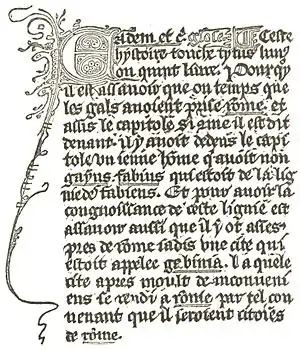 Eadem et c̄ glose. Ceste
hystoire touche tytus liuius
ou quint liure. Pourquoy
il est assauoir que ou temps que
les gals auoient prise rōme. et
assis le capitole si cōme il est dit
deuant. il y auoit dedens le capi
tole vn ieune hōme q̄ auoit non
gayus fabius qui estoit de la lig
niee des fabiens. Et pour auoir la
congnoissance de ceste lignie est
assauoir aussi que il y ot asses
pres de rōme iadis vne cite qui
estoit appelee gebinia. la quele
cite apres moult de inconueni
ens se rendi a rōme par tel con
uenant que il seroient citoiēs
de rōme.